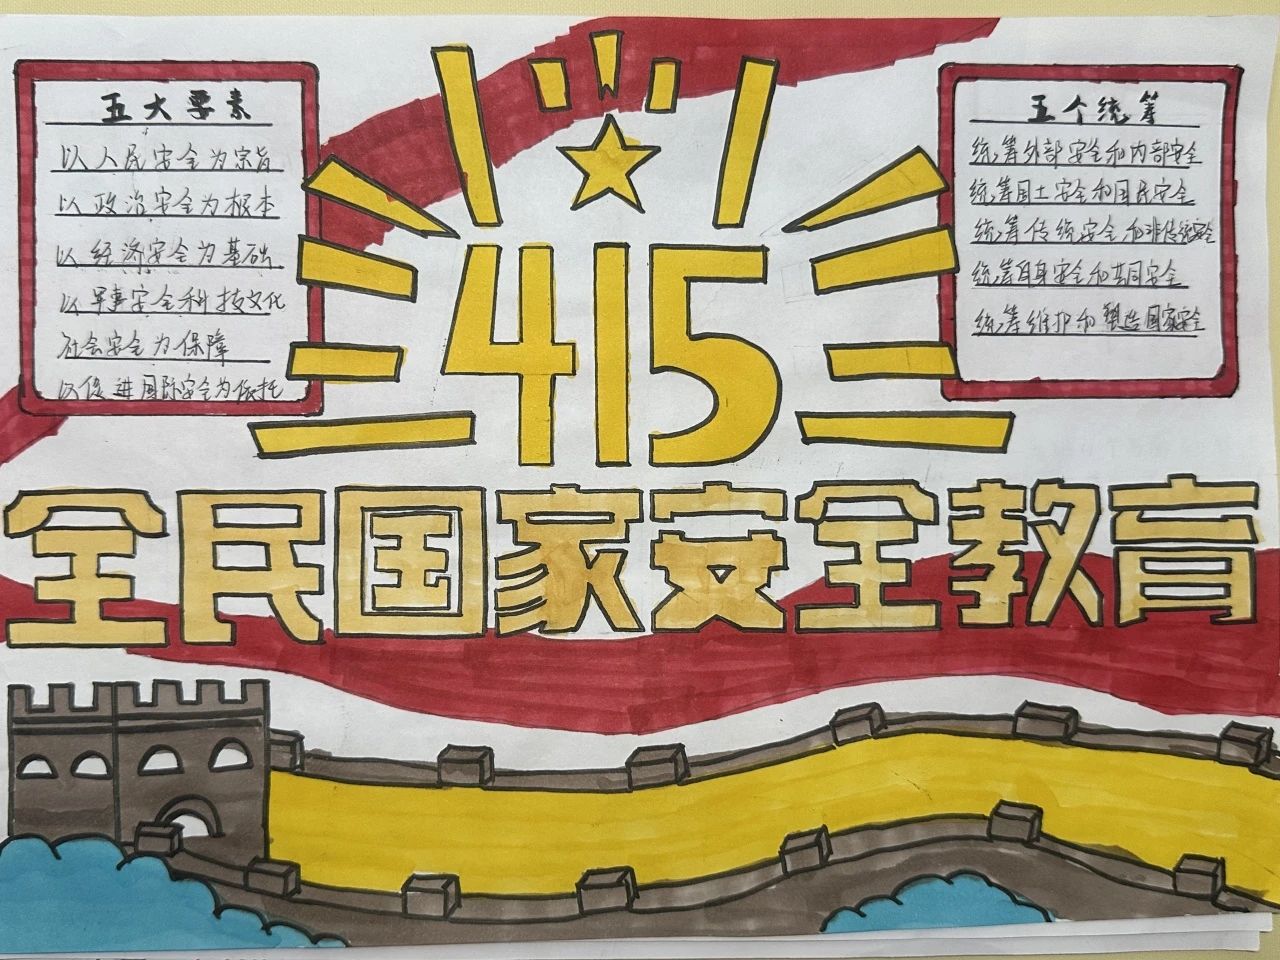 五大要素
以人民安全为宗旨
以政治安全为根本
以经济安全为基础
以军事安全科技文化
社会安全为保障
以促进国际安全为依托
五个统筹
统筹外部安全和内部安全
统筹国土安全和国民安全
统筹传统安全和非传统安全
统筹自身安全和共同安全
统筹维护和塑造国家安全
415
全民国家安全教育